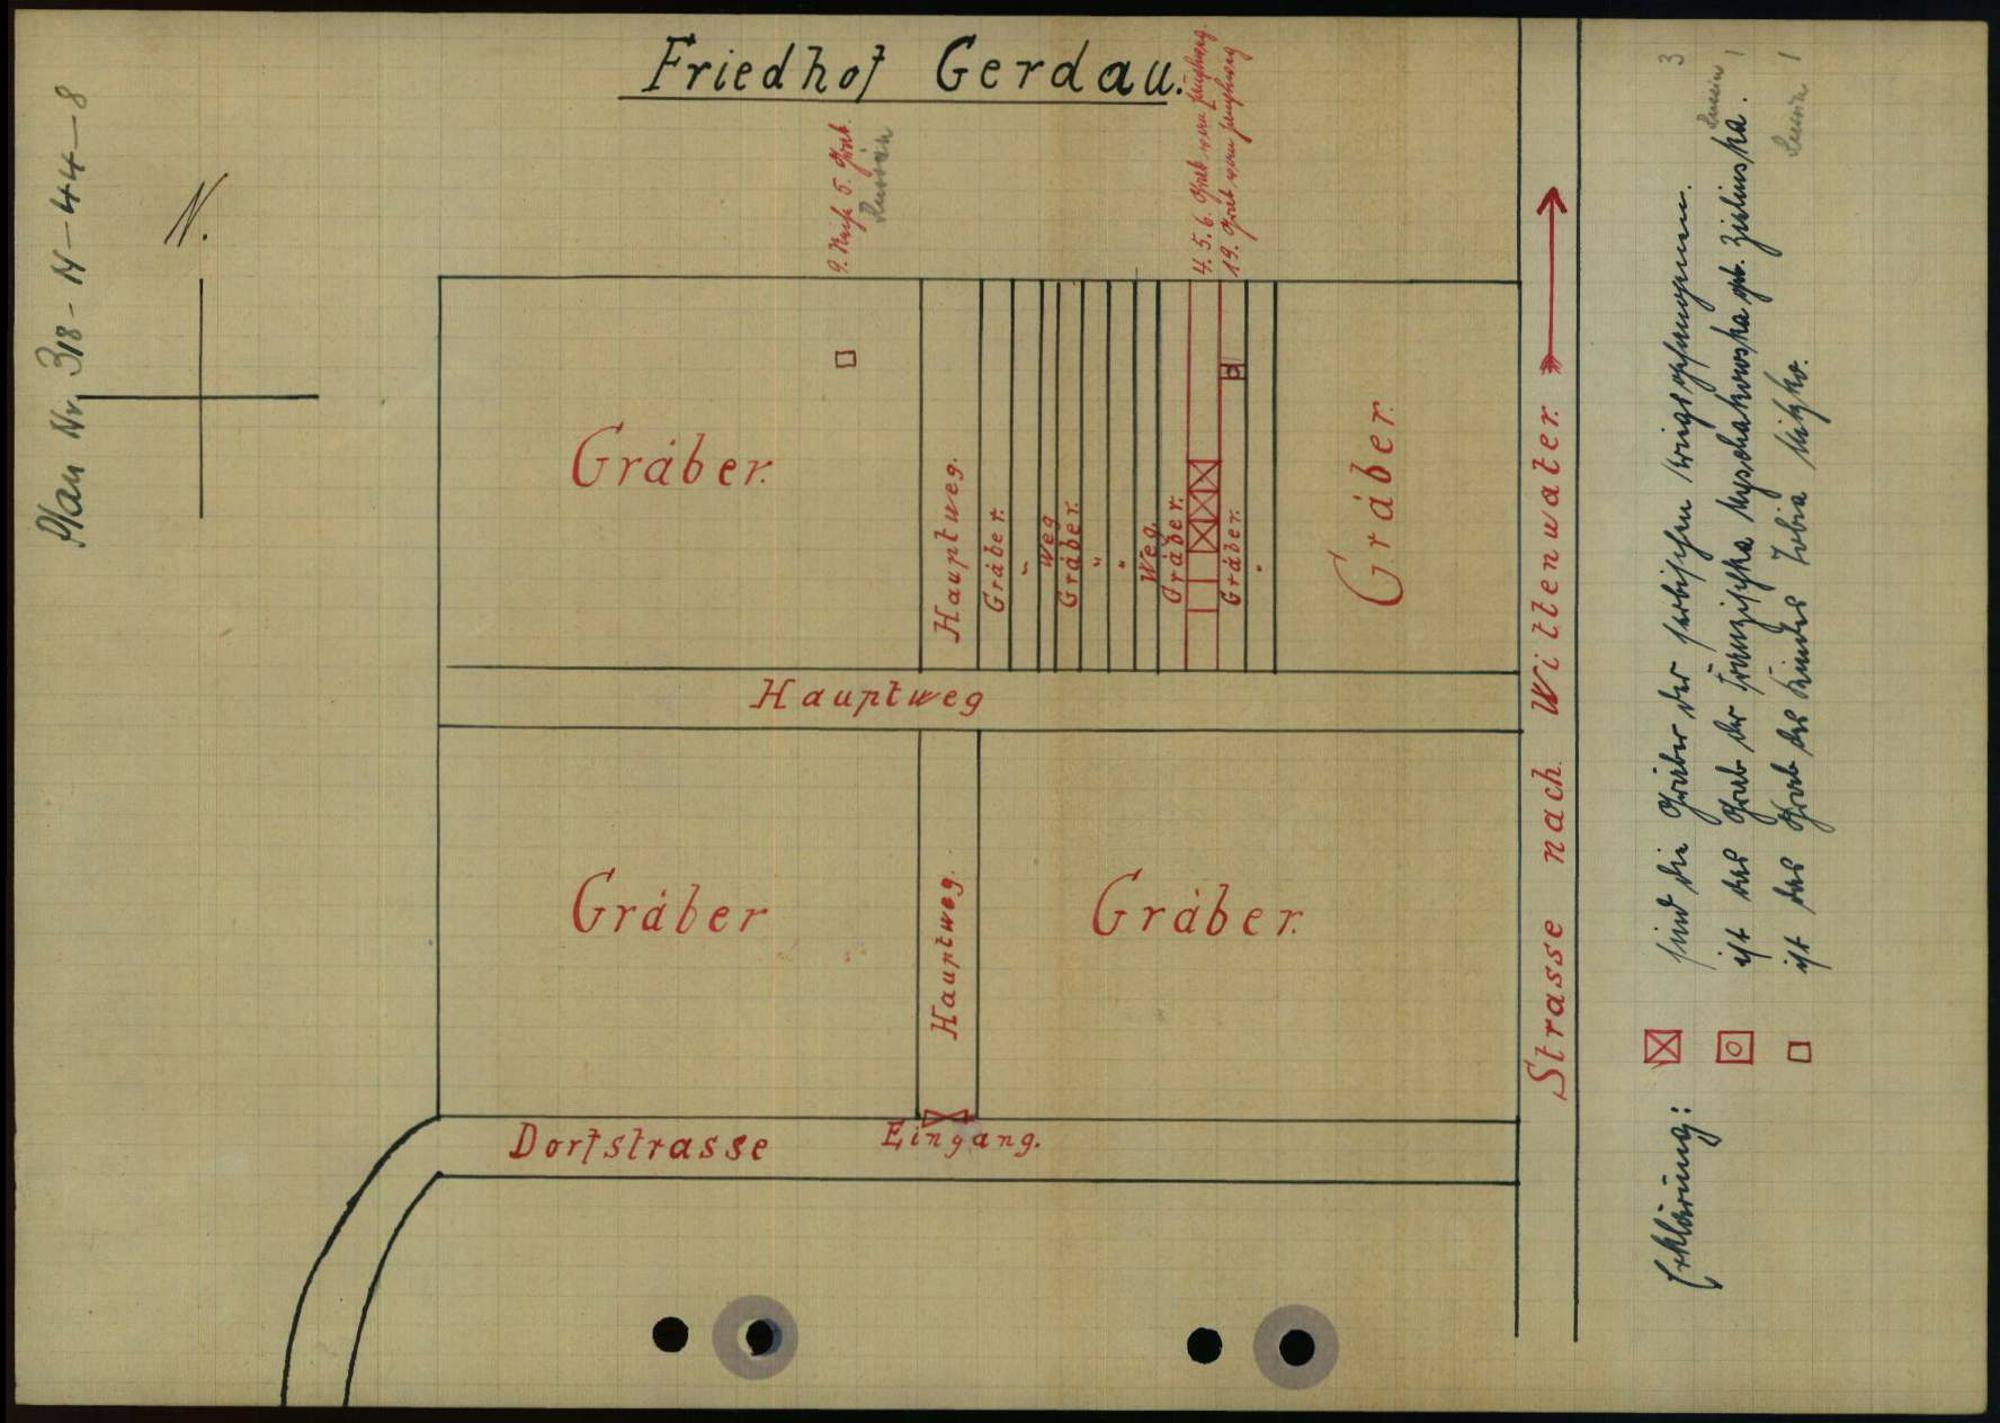 Friedhof Gerdau.
Plan Nr. 318-N-44-8
N.
9. Reihe 5. Grab.
4. 5. 6. Grab vom
19. Grab vom
Gräber.
Hauptweg.
Gräber.
"
Weg
Gräber.
"
"
Weg.
Gräber.
Gräber.
"
Gräber.
Hauptweg
Gräber
Hauptweg.
Gräber.
Dorfstrasse
Eingang.
Strasse nach Wittenwater.
Erklärung:
sind die Gräber der serbischen Kriegsgefangenen. 3
ist das Grab der Franzischka geb. Zielinska. 1
ist das Grab des Kindes 1